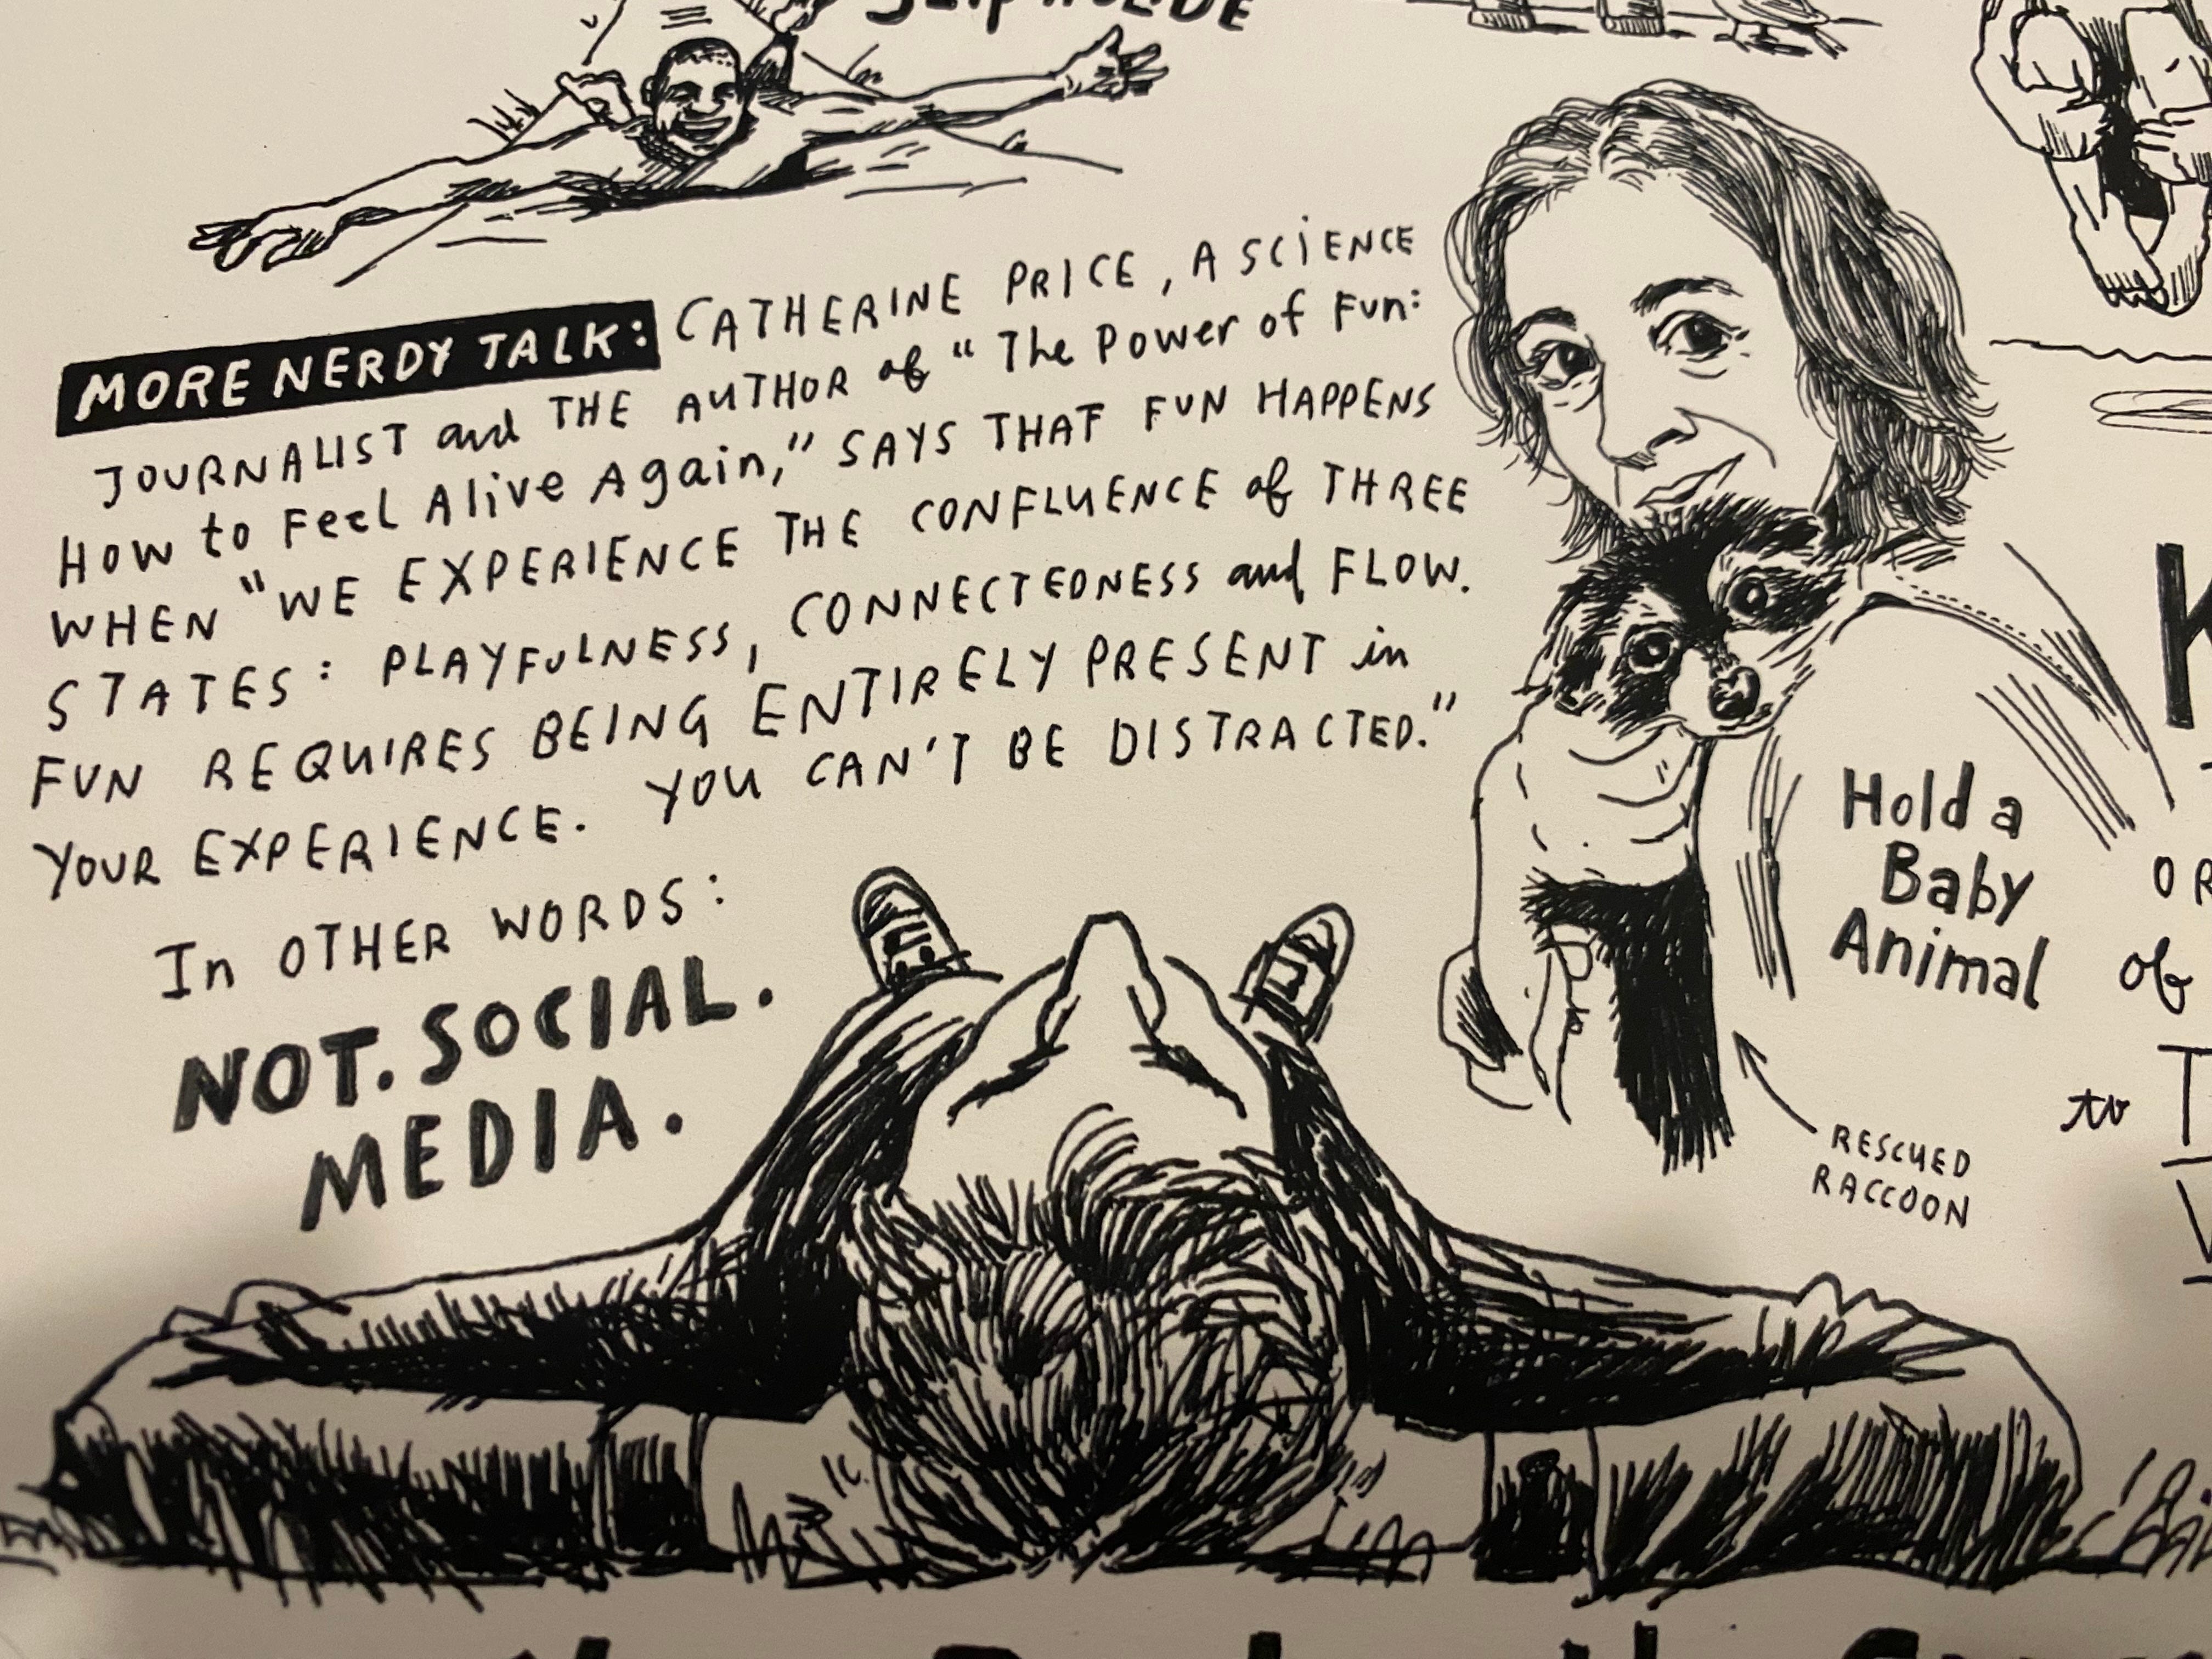 MORE NERDY TALK: CATHERINE PRICE, A SCIENCE
JOURNALIST and THE AUTHOR of "The Power of Fun:
How to Feel Alive Again," SAYS THAT FUN HAPPENS
WHEN "WE EXPERIENCE THE CONFLUENCE of THREE
STATES: PLAYFULNESS, CONNECTEDNESS and FLOW.
FUN REQUIRES BEING ENTIRELY PRESENT in
YOUR EXPERIENCE. YOU CAN'T BE DISTRACTED."
In OTHER WORDS:
NOT. SOCIAL.
MEDIA.
Hold a
Baby
Animal
RESCUED
RACCOON
of
to